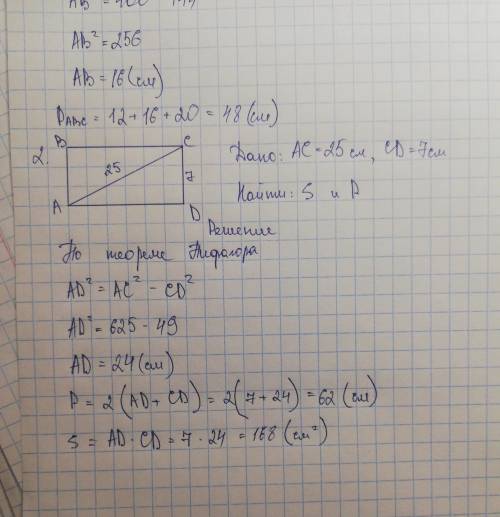 AB² = 256
AB = 16 (см)
P_ABC = 12 + 16 + 20 = 48 (см)
2.
B C
25
7
A D
Дано: AC = 25 см, CD = 7 см
Найти: S и P
Решение
По теореме Пифагора
AD² = AC² - CD²
AD² = 625 - 49
AD = 24 (см)
P = 2 (AD + CD) = 2 (7 + 24) = 62 (см)
S = AD · CD = 7 · 24 = 168 (см²)